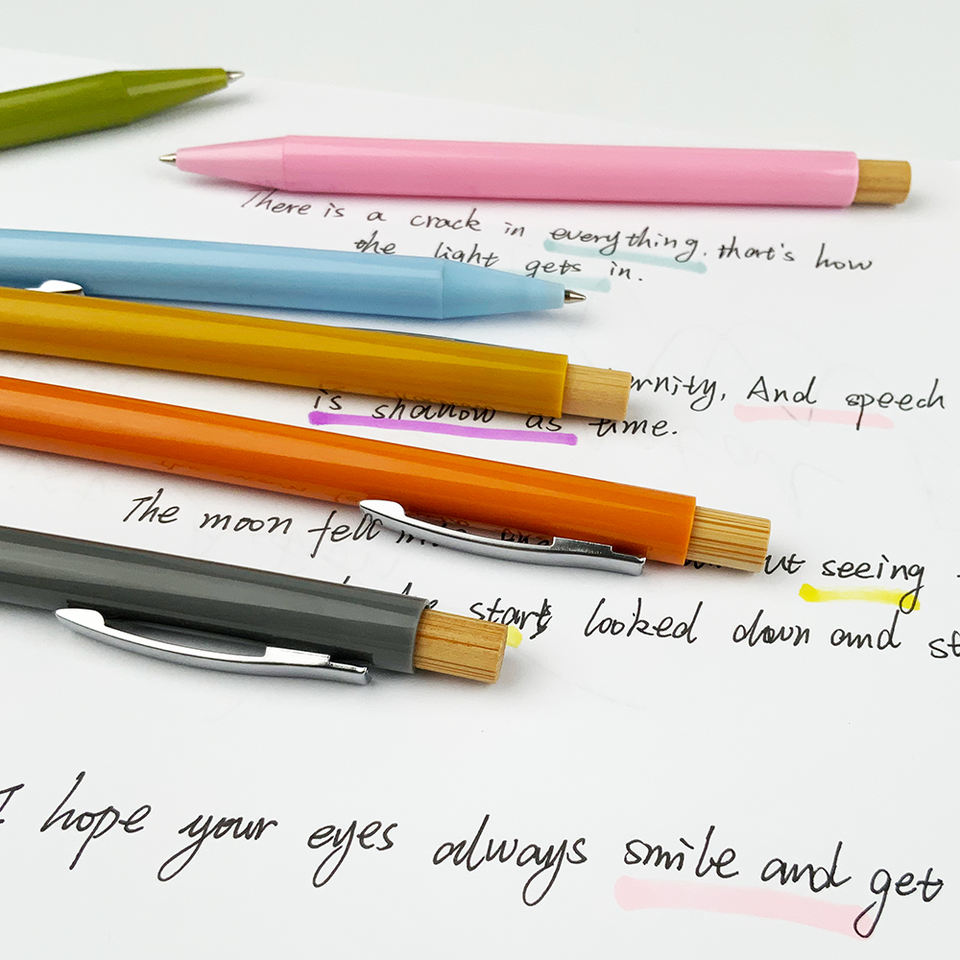 There is a crack in everything. that's how
the light gets in.
And speech
is shallow as time.
The moon fell seeing
stars looked down and
I hope your eyes always smile and get